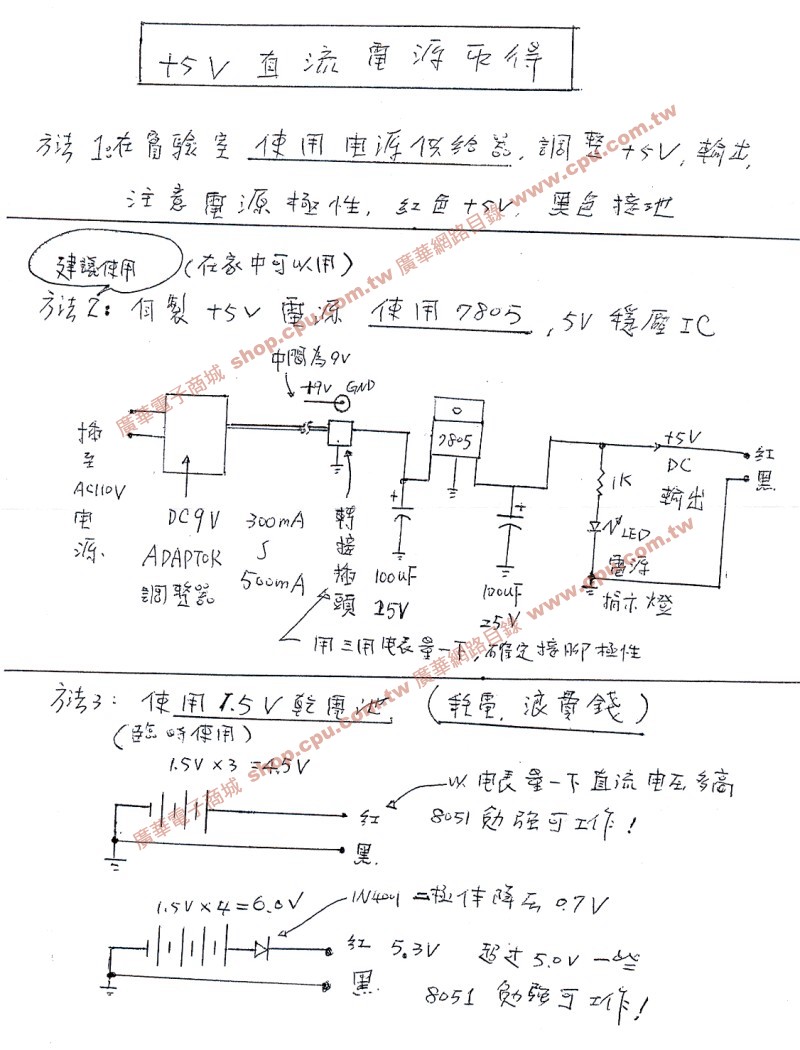 +5V 直流電源取得
方法1:在實驗室 使用电源供給器,調整+5V,輸出,
注意電源極性,紅色+5V,黑色接地
建議使用
(在家中可以用)
方法2:自製 +5V 電源 使用7805,5V 穩壓IC
中間為9V
+9V GND
插至AC110V电源.
DC9V
ADAPTOR
調整器
300mA
∫
500mA
轉接插頭
100uF
25V
7805
100uF
25V
1K
LED
電源
指示燈
+5V
DC
輸出
紅
黑
用三用电表量一下,確定接腳極性
方法3: 使用1.5V乾電池 (耗電,浪費錢)
(臨時使用)
1.5V×3=4.5V
紅
黑
以电表量一下直流电压多高
8051 勉強可工作!
1.5V×4=6.0V
1N4001 二極体降压 0.7V
紅 5.3V 超过5.0V一些
黑
8051 勉強可工作!
廣華電子商城 shop.cpu.com.tw 廣華網路目錄 www.cpu.com.tw
廣華電子商城 shop.cpu.com.tw 廣華網路目錄 www.cpu.com.tw